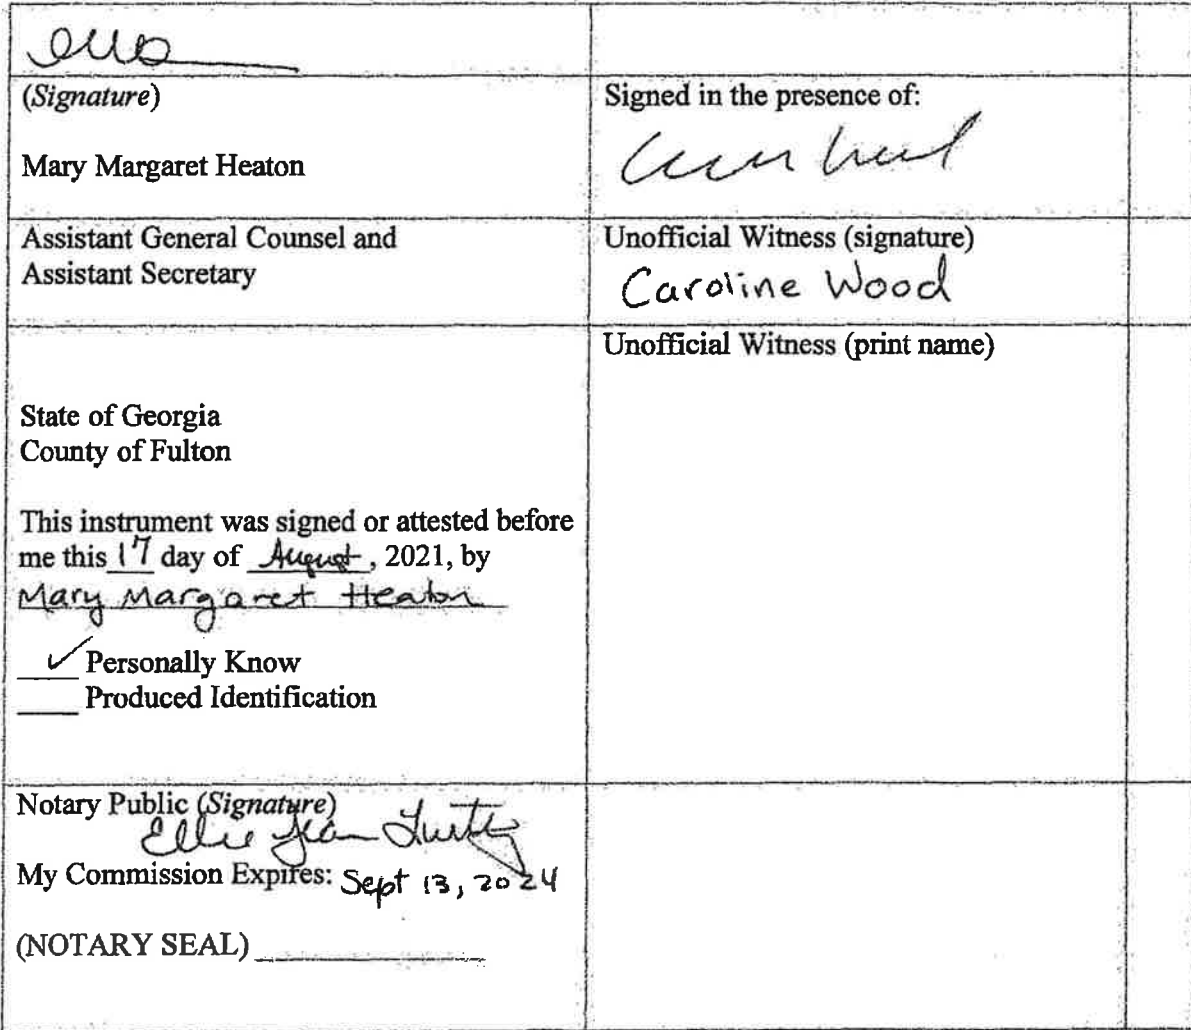 (Signature)
Mary Margaret Heaton
Signed in the presence of:
Assistant General Counsel and
Assistant Secretary
Unofficial Witness (signature)
Caroline Wood
Unofficial Witness (print name)
State of Georgia
County of Fulton
This instrument was signed or attested before
me this 17 day of August, 2021, by
Mary Margaret Heaton
✓ Personally Know
Produced Identification
Notary Public (Signature)
Ellie Jean
My Commission Expires: Sept 13, 2024
(NOTARY SEAL)